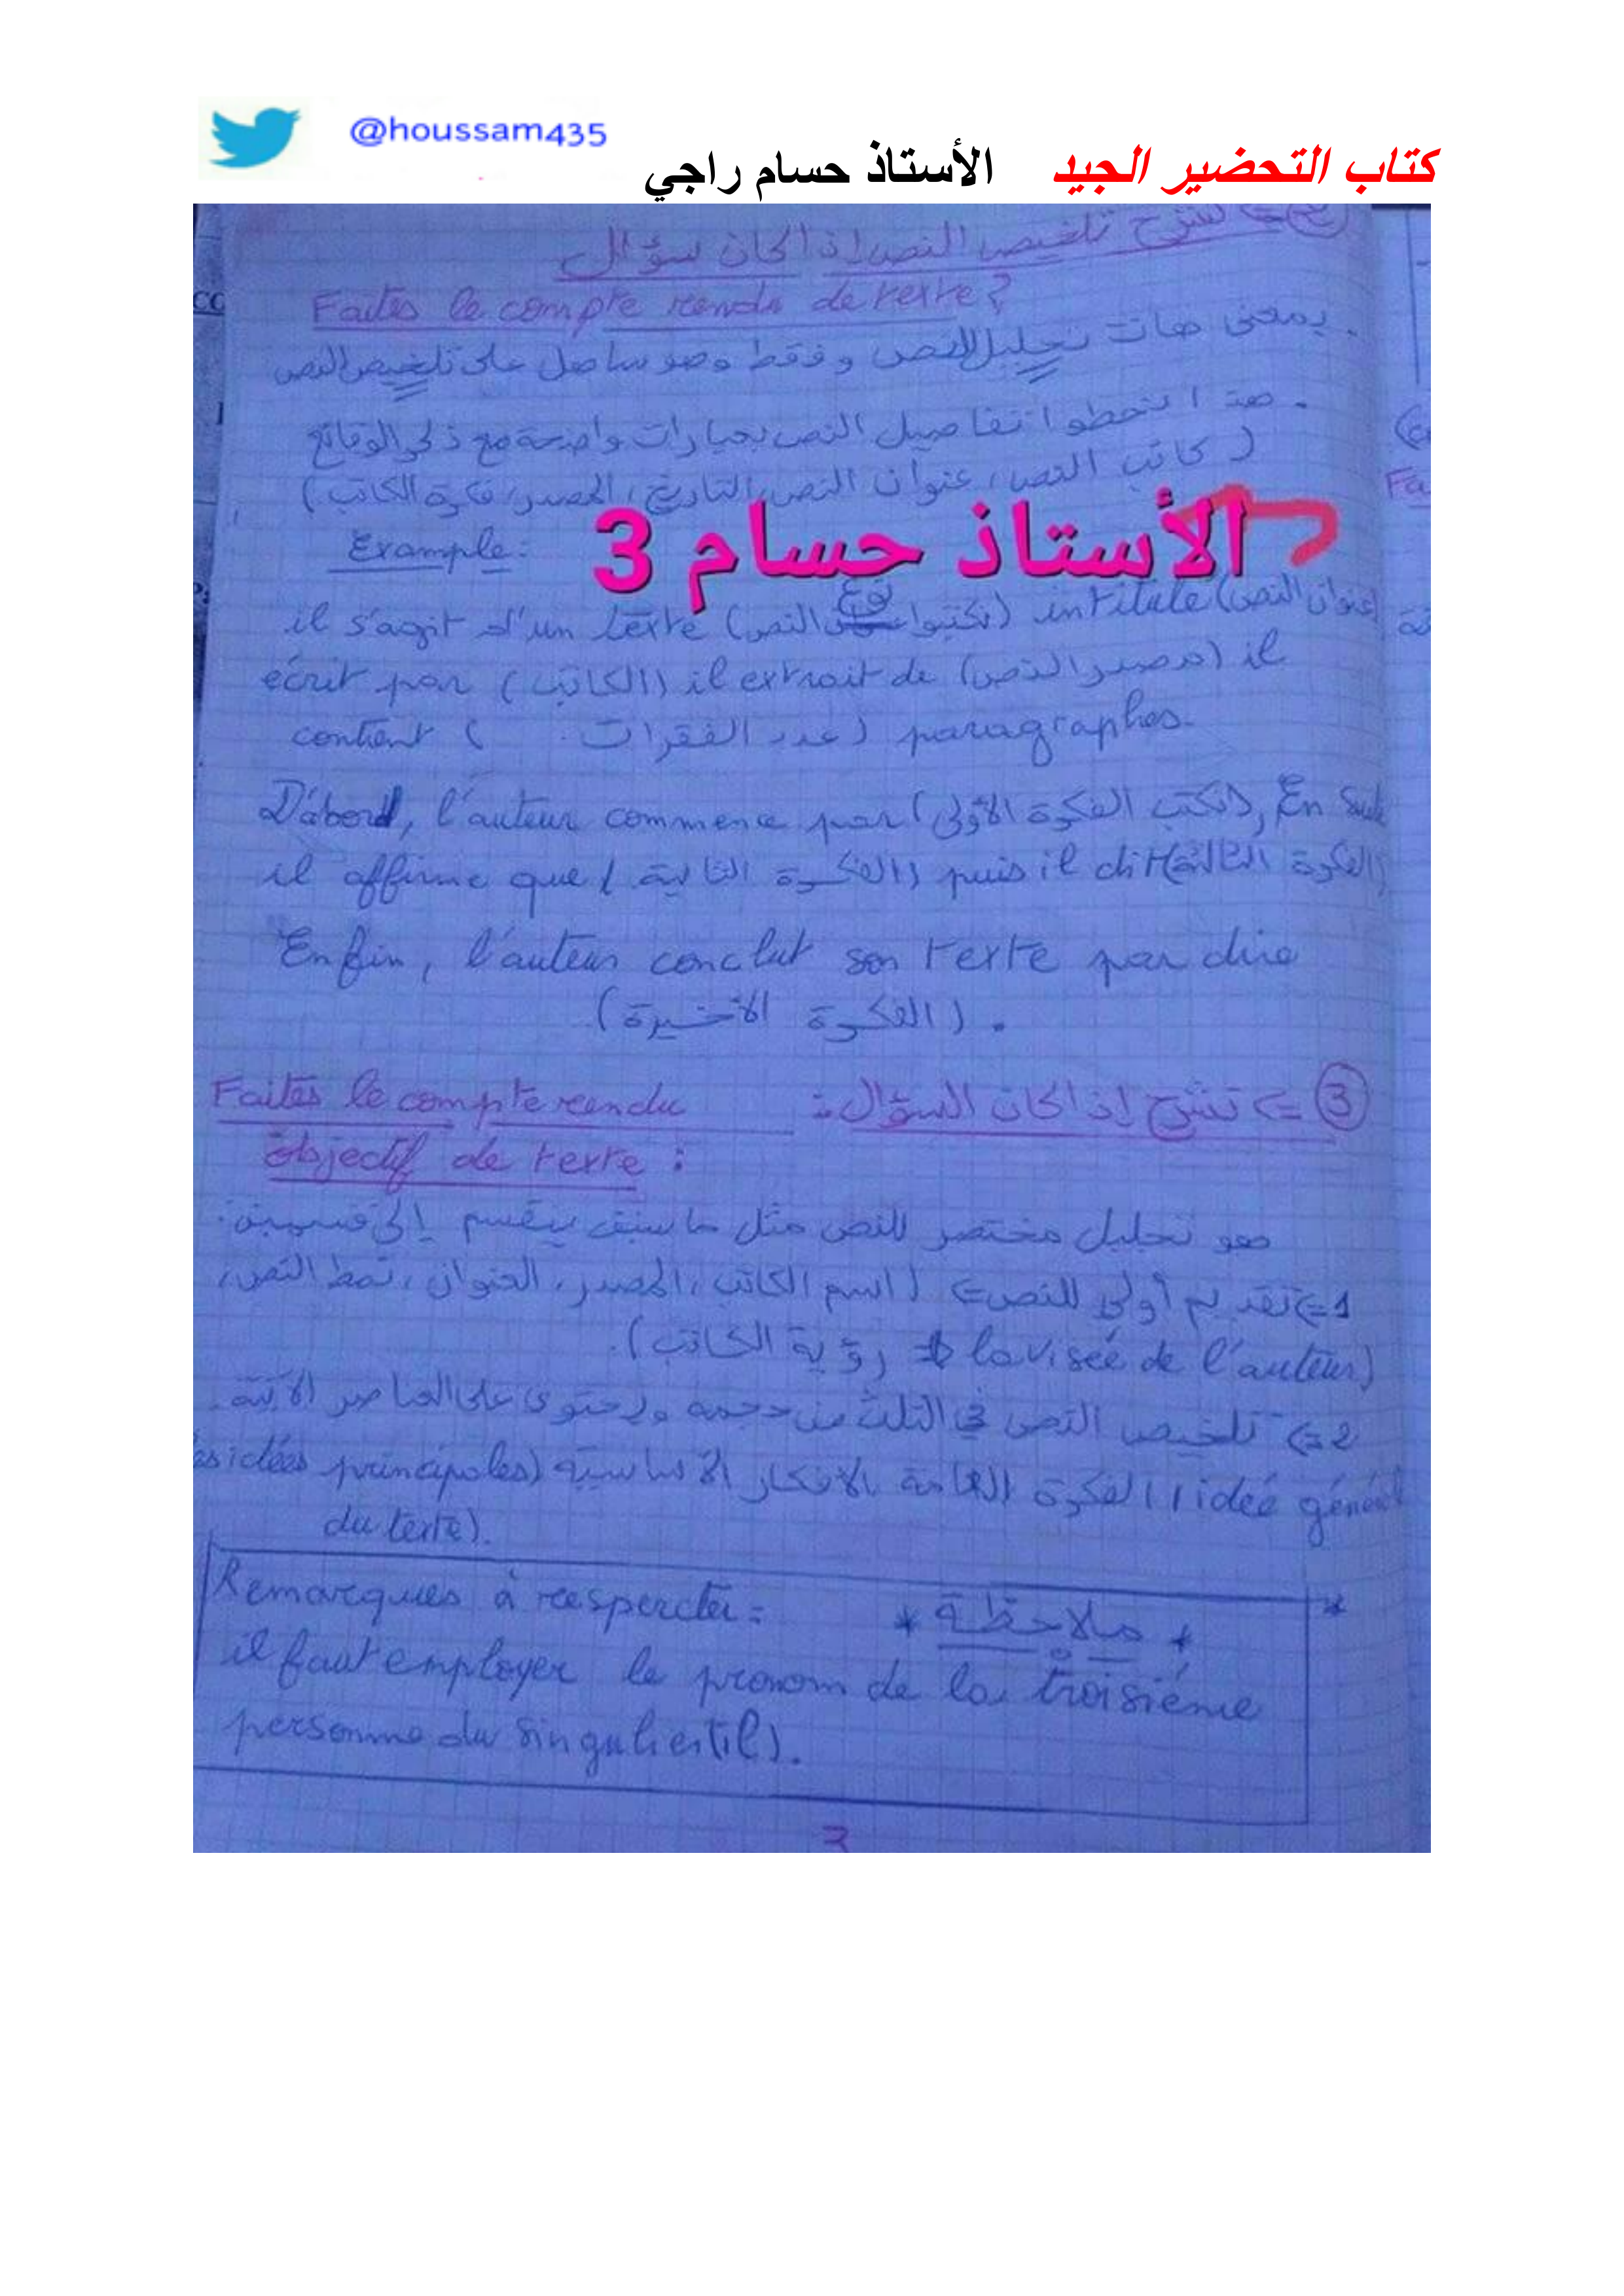 @houssam435
كتاب التحضير الجيد الأستاذ حسام راجي
شرح تلخيص النص إذا كان سؤال
Faites le compte rendu de texte?
. بمعنى هات تحليل للنص وفقط وهو سا صل على تلخيص النص
تفاصيل النص بعبارات واضحة مع ذكر الوقائع
( كاتب النص، عنوان النص، التاريخ، المصدر، فكرة الكاتب)
الأستاذ حسام 3
Example:
il s'agit d'un texte (تكتبوا نوع النص) intitulé (عنوان النص)
écrit par (الكاتب) il extrait de (مصدر النص) il
contient ( عدد الفقرات) paragraphes.
D'abord, l'auteur commence par (نكتب الفكرة الأولى), En Suite
il affirme que (الفكرة الثانية) puis il dit (الفكرة الثالثة)
Enfin, l'auteur conclut son texte par dire
(الفكرة الأخيرة) .
③ => تشرح إذا كان السؤال:
Faites le compte rendu
objectif de texte :
هو تحليل مختصر للنص مثل ما سبق ينقسم إلى قسمين:
1=> تقديم أولي للنص => (اسم الكاتب، المصدر، العنوان، نمط النص،
رؤية الكاتب) la visée de l'auteur)
2=> تلخيص النص في الثلث من حجمه ويحتوي على العناصر الآتية.
الفكرة العامة الافكار الأساسية (les idées principales l'idée général
du texte).
Remarques à respercter: * ملاحظة *
il faut employer le pronom de la troisiéme
personne du singulier (il).
3